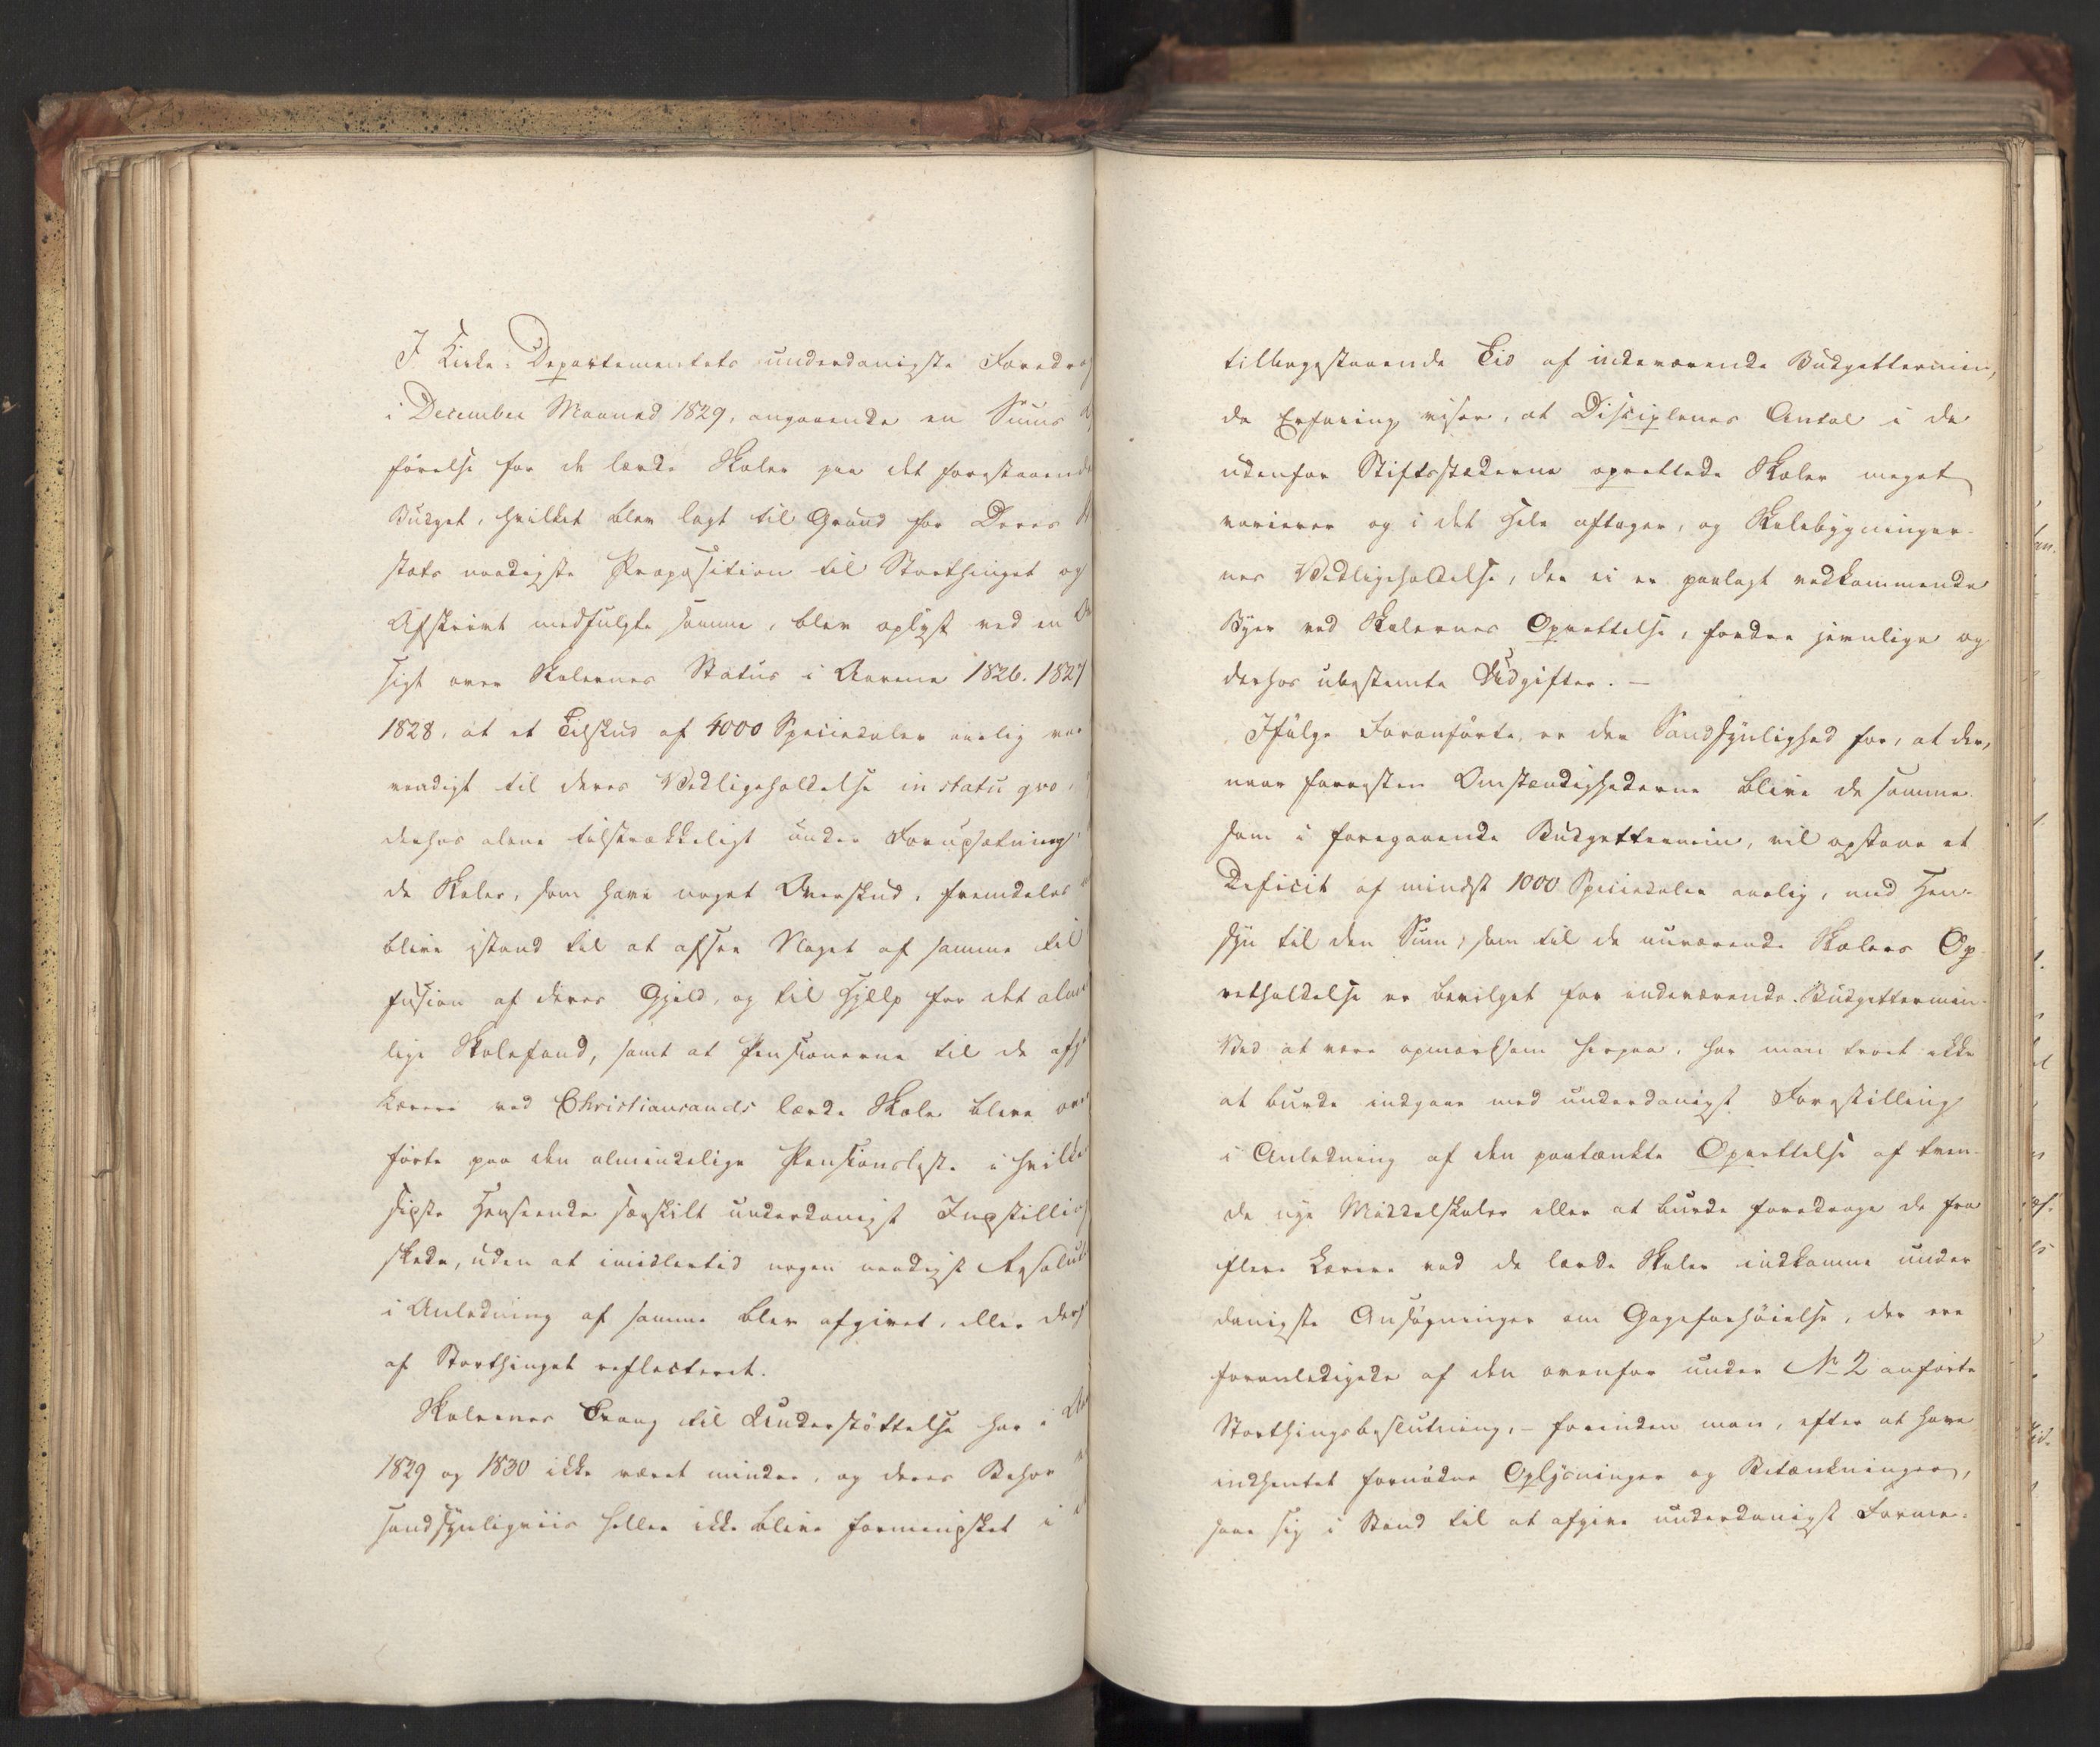 I Kirke-Departementets underdanigste Foredrag
i December Maaned 1829, angaaende en Sums
førelse for de lærde Skoler paa det forestaaende
Budget, hvilket blev lagt til Grund for Deres
stæts naadigste Proposition til Storthinget og
Afskrivt medfulgte samme, blev oplyst ved en
sigt over Skolernes Status i Aarene 1826. 1827
1828, at et Tilskud af 4000 Speciedaler aarlig var
nødigt til deres Vedligeholdelse in statu qvo,
derhos alene tilstrækkeligt under Forudsætning
de Skoler, som have noget Overskud, fremdeles
blive istand til at afsee Noget af samme til
fusion af deres Gjeld, og til Hjelp for det almi
lige Skolefond, samt at Pensionerne til de afg
Lærere ved Christiansands lærde Skole bleve over
førte paa den almindelige Pensionsliste i hvilke
sidste Henseende særskilt underdanigst Indstilling
skede, uden at imidlertid nogen naadigst Resoluti
i Anledning af samme blev afgivet, eller ders
af Storthinget reflecteret.
Skolernes Trang til Understøttelse har i
1829 og 1830 ikke været mindre, og deres Behov
sandsynligviis heller ikke blive formindsket i
tilbagestaaende Tid af indeværende Budgettermin,
da Erfaring viser, at Disciplenes Antal i de
udenfor Stiftsstæderne oprettede Skoler meget
varierer og i det Hele aftager, og Skolebygninger-
nes Vedligeholdelse, der ei er paalagt vedkommende
Byer ved Skolernes Oprettelse, fordrer jevnlige og
derhos ubestemte Udgifter. —
Ifølge Foranførte er der Sandsynlighed for, at der,
naar forresten Omstændighederne blive de samme
som i foregaaende Budgettermin, vil opstaae et
Deficit af mindst 1000 Speciedaler aarlig, med Hen-
syn til den Sum, som til de nuværende Skolers Op-
retholdelse er bevilget for indeværende Budgettermin.
Ved at være opmærksom herpaa, har man troet ikke
at burde indgaae med underdanigst Forestilling
i Anledning af den paatænkte Oprettelse af tven-
de nye Middelskoler eller at burde foredrage de fra
flere Lærere ved de lærde Skoler indkomne under
danigste Ansøgninger om Gageforhøielse, der ere
foranledigede af den ovenfor under No 2 anførte
Storthingsbeslutning, – forinden man, efter at have
indhentet fornødne Oplysninger og Betænkninger,
saae sig i Stand til at afgive underdanigst Forme-